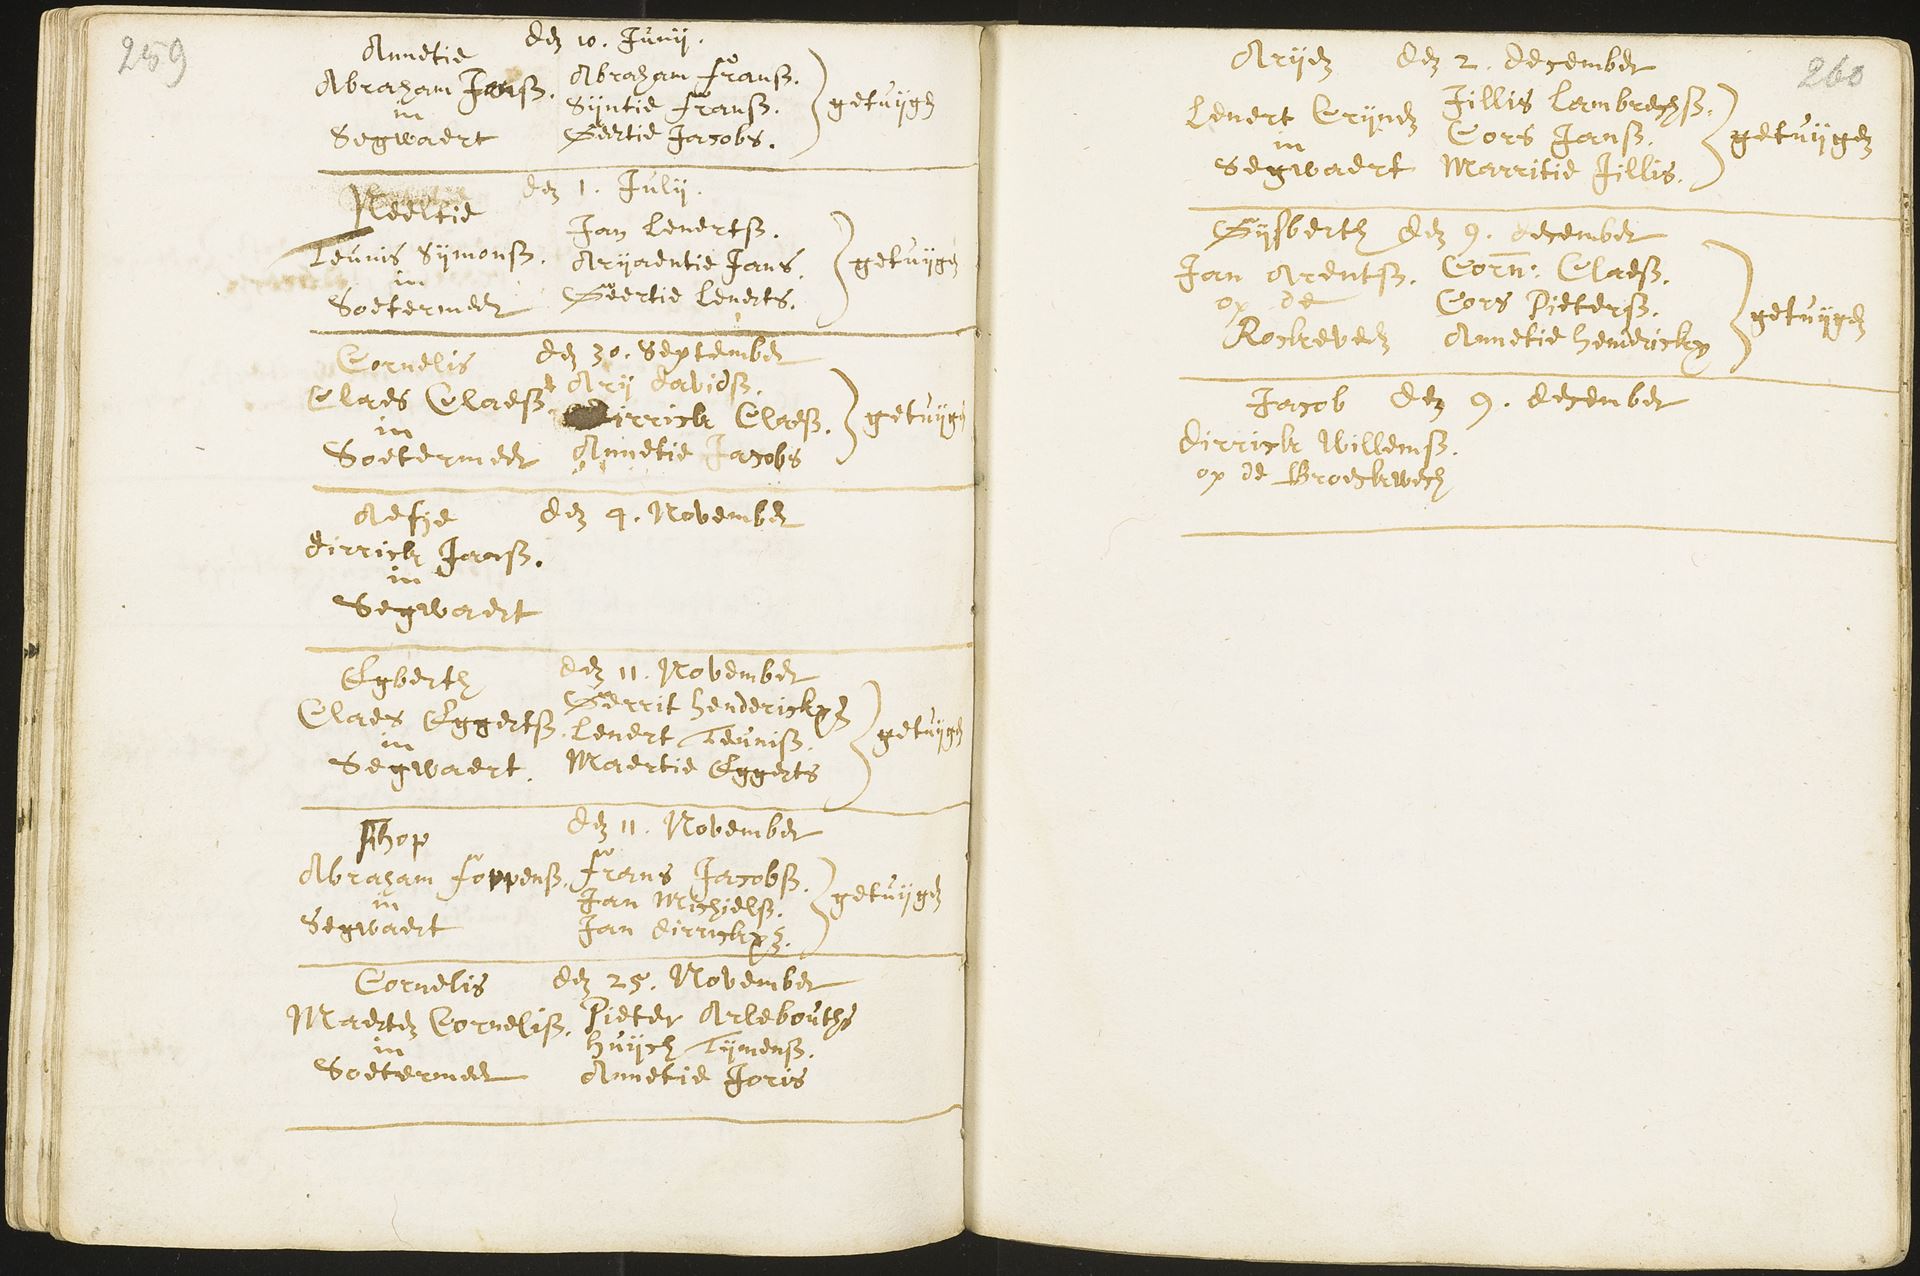 259
Annetie den 10. Junij.
Abraham Jansz. Abraham fransz.
in Sijntie fransz. getuijgen
Segwaert Geertie Jacobs.
Neeltie den 1. Julij.
Teunis Sijmonsz. Jan Lenertsz.
in Arijaentie Jans. getuijgen
Soetermeer Geertie Lenerts.
Cornelis den 30. September
Claes Claesz Arij davidsz.
in Dirrick Claesz. getuijgen
Soetermeer Annetie Jacobs
Aefje den 4. November
dirrick Jansz.
in
Segwaert
Egberth den 11. November
Claes Eggertsz. Gerrit henderickxz
in Lenert Teunisz. getuijgen
Segwaert. Maertie Eggerts
Fhop den 11. November
Abraham foppensz. frans Jacobsz.
in Jan Michielsz. getuijgen
Segwaert Jan dirrickxz.
Cornelis den 25. November
Maerten Cornelisz. Pieter Arlebouths
in huijch Tijmensz.
Soetermeer Annetie Joris
260
Arijen den 2. december
Lenert Crijnen Jillis Lambrechsz.
in Cors Jansz. getuijgen
Segwaert Marritie Jillis.
Gijsberth den 9. december
Jan Arentsz. Corn: Claesz.
op de Cors Pietersz. getuijgen
Rockeveen Annetie henderickx
Jacob den 9. december
dirrick Willemsz.
op de Broeckwech